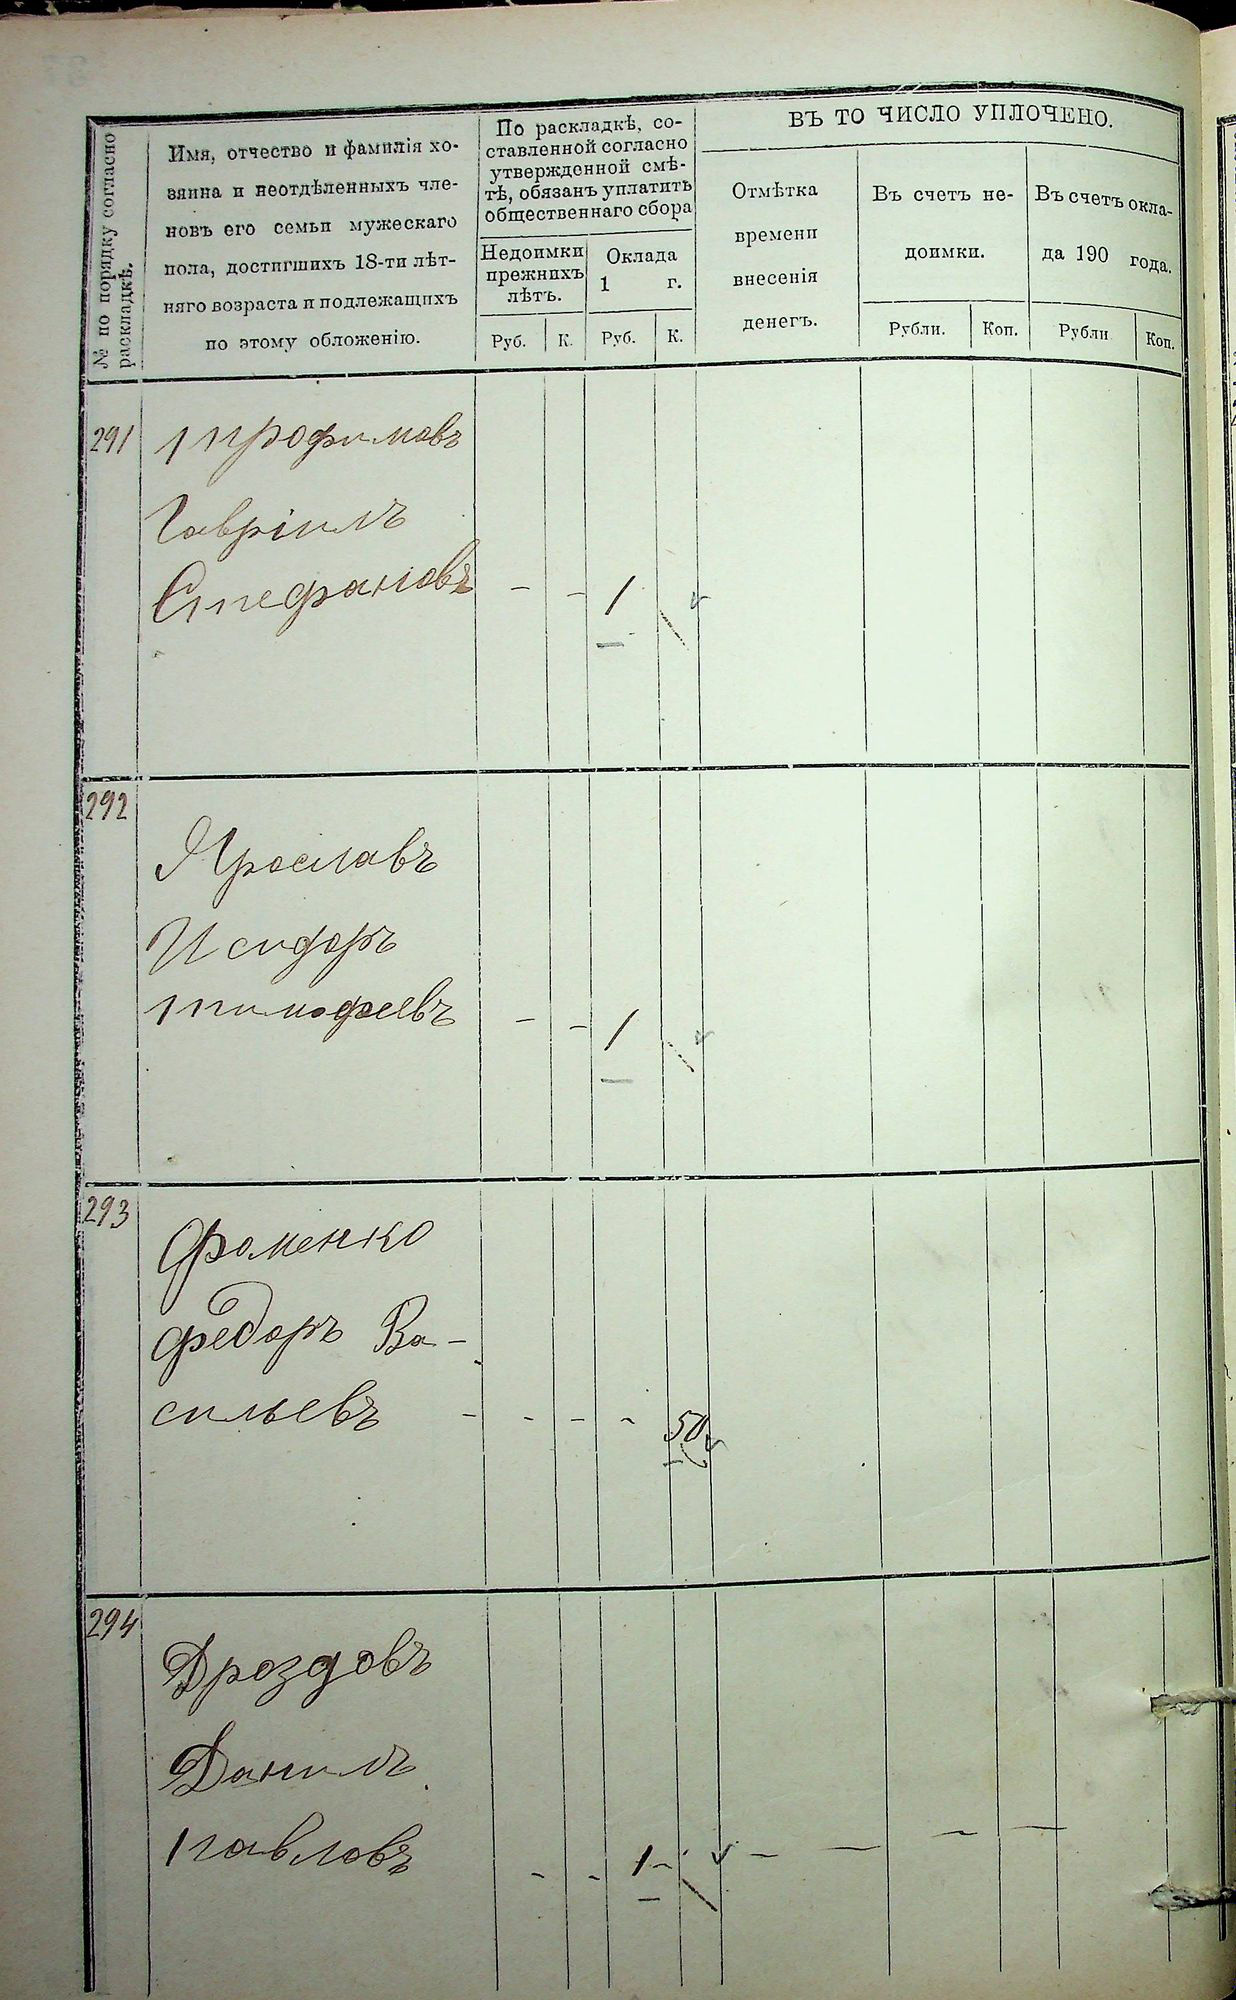 № по порядку согласно
раскладкѣ.
Имя, отчество и фамилія хо-
зяина и неотдѣленныхъ чле-
новъ его семьи мужескаго
пола, достигшихъ 18-ти лѣт-
няго возраста и подлежащихъ
по этому обложенію.
По раскладкѣ, со-
ставленной согласно
утвержденной смѣ-
тѣ, обязанъ уплатить
общественнаго сбора
Недоимки
прежнихъ
лѣтъ.
Оклада
1 г.
Руб.
К.
Руб.
К.
ВЪ ТО ЧИСЛО УПЛОЧЕНО.
Отмѣтка
времени
внесенія
денегъ.
Въ счетъ не-
доимки.
Въ счетъ окла-
да 190 года.
Рубли.
Коп.
Рубли
Коп.
291 Трофимовъ
Гавріилъ
Стефановъ - - 1
292
Ярославъ
Исидоръ
Тимофеевъ - - 1
293
Фоменко
Федоръ Ва-
сильевъ - - - - 50
294
Дроздовъ
Данилъ
Павловъ - - 1 - - - - -